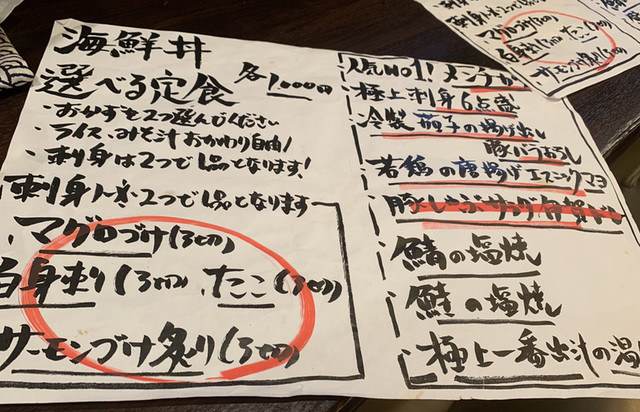 海鮮丼
選べる定食 各1,000円
・おかずを2つ選んでください
・ライス、みそ汁おかわり自由！
・刺身は2つで1品となります！
刺身 2つで1品となります
、マグロづけ(3切)
白身炙り(3切)、たこ(3切)
サーモンづけ炙り(3切)
人気No1! メンチカツ
極上刺身6点盛
冷製 茄子の揚げ出し
豚バラおろし
若鶏の唐揚げ エスニックマヨ
豚しゃぶサラダ
鯖の塩焼
鮭の塩焼
極上一番出汁の温